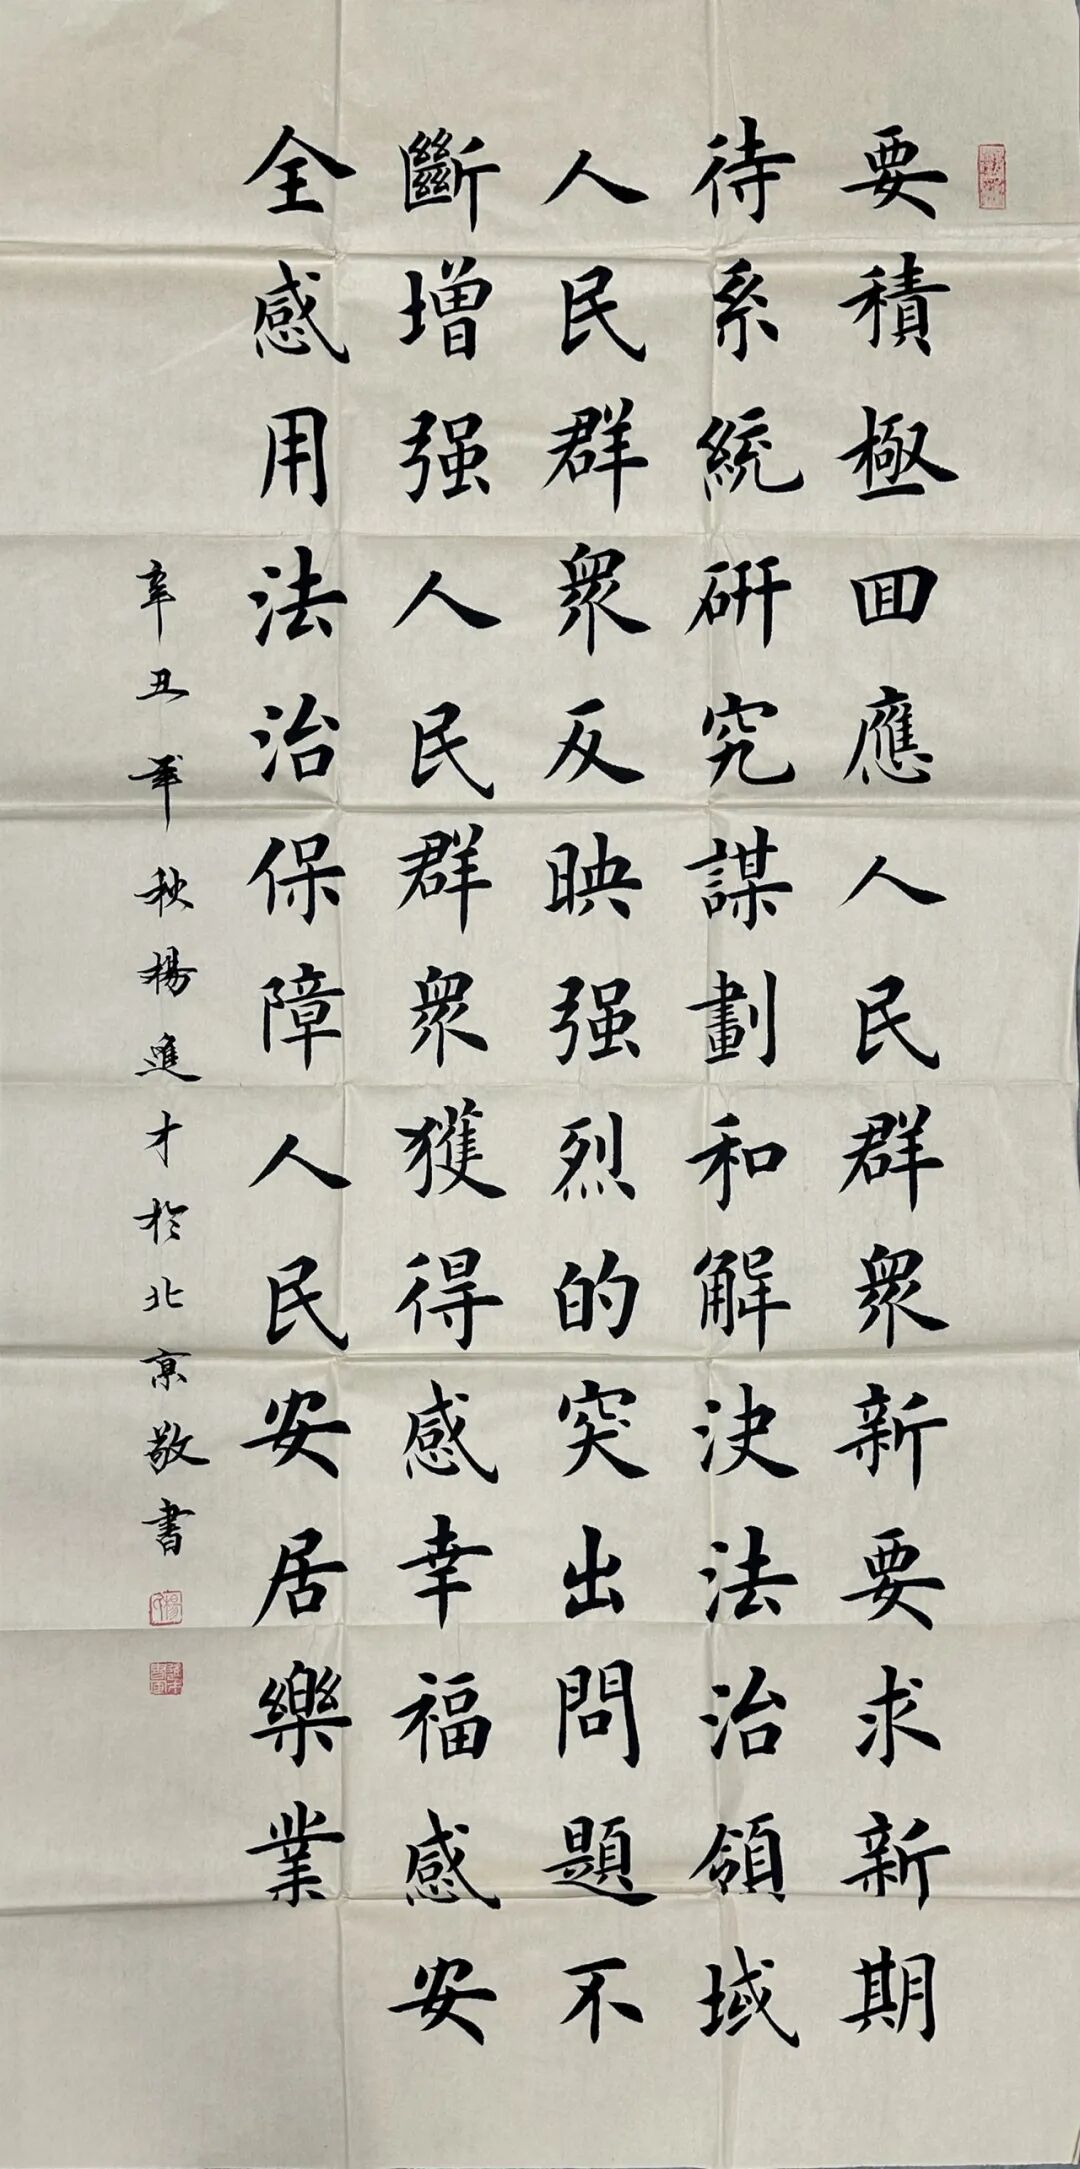 要積極回應人民群眾新要求新期
待系統研究謀劃和解決法治領域
人民群眾反映强烈的突出問題不
斷增强人民群眾獲得感幸福感安
全感用法治保障人民安居樂業
辛丑年秋楊進才於北京敬書